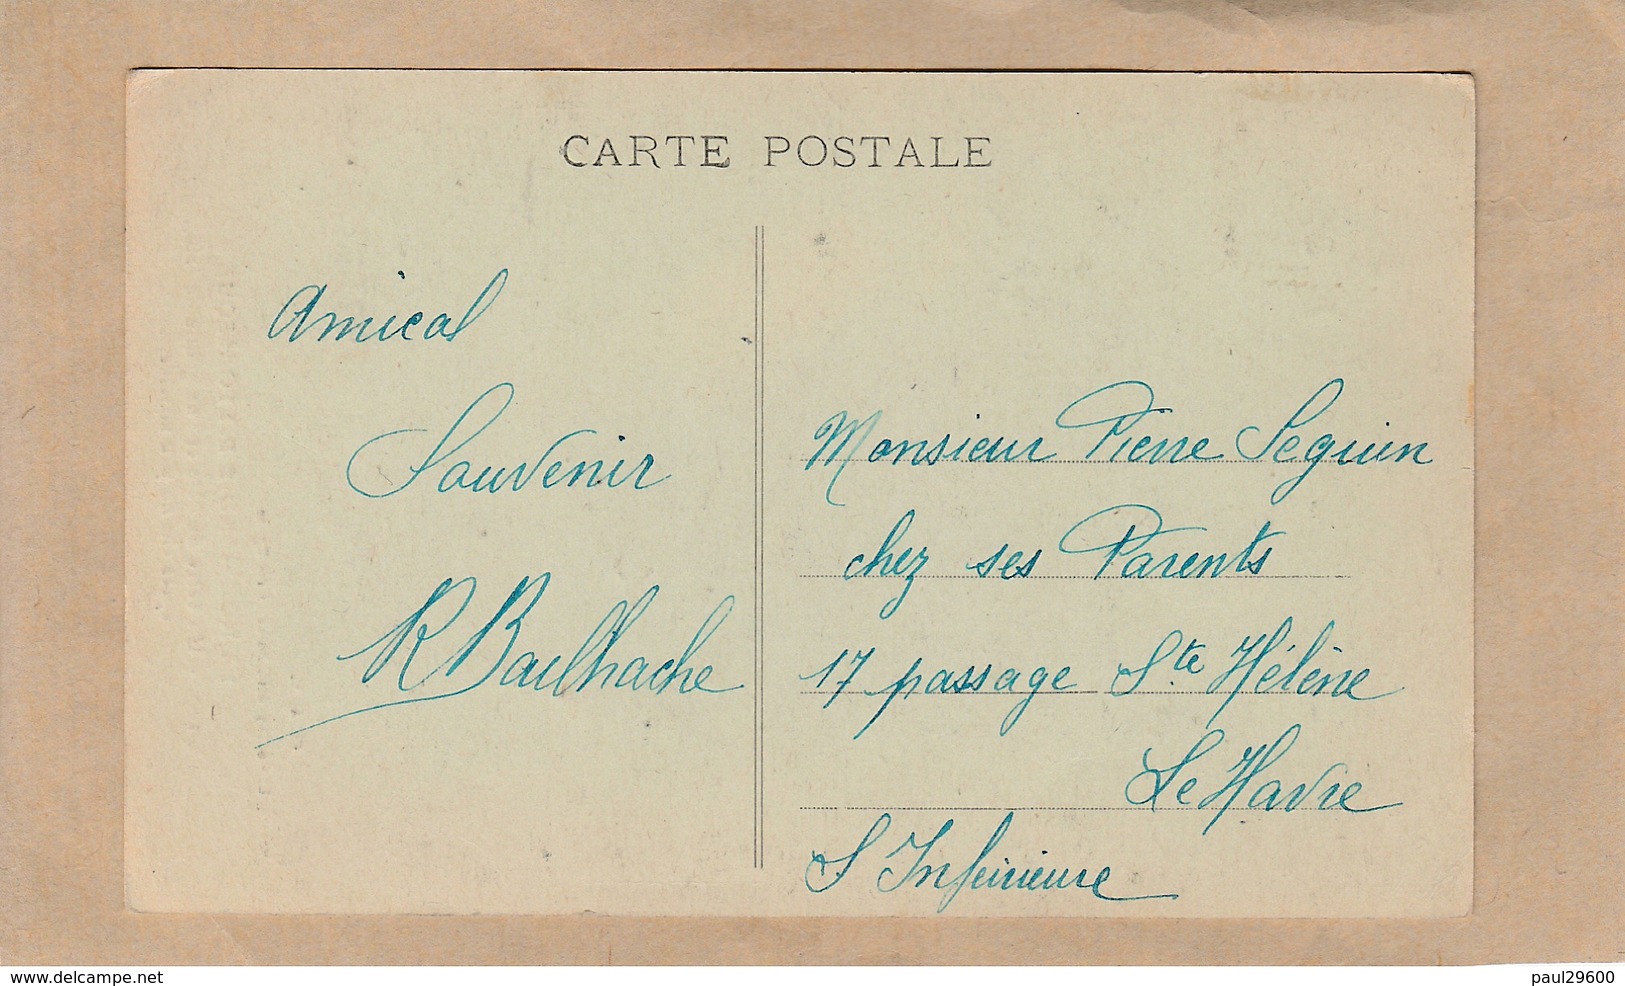 CARTE POSTALE
Amical
Souvenir
R Bailhache
Monsieur Pierre Seguin
chez ses Parents
17 passage Ste Hélène
Le Havre
S Inférieure
www.delcampe.net
paul29600